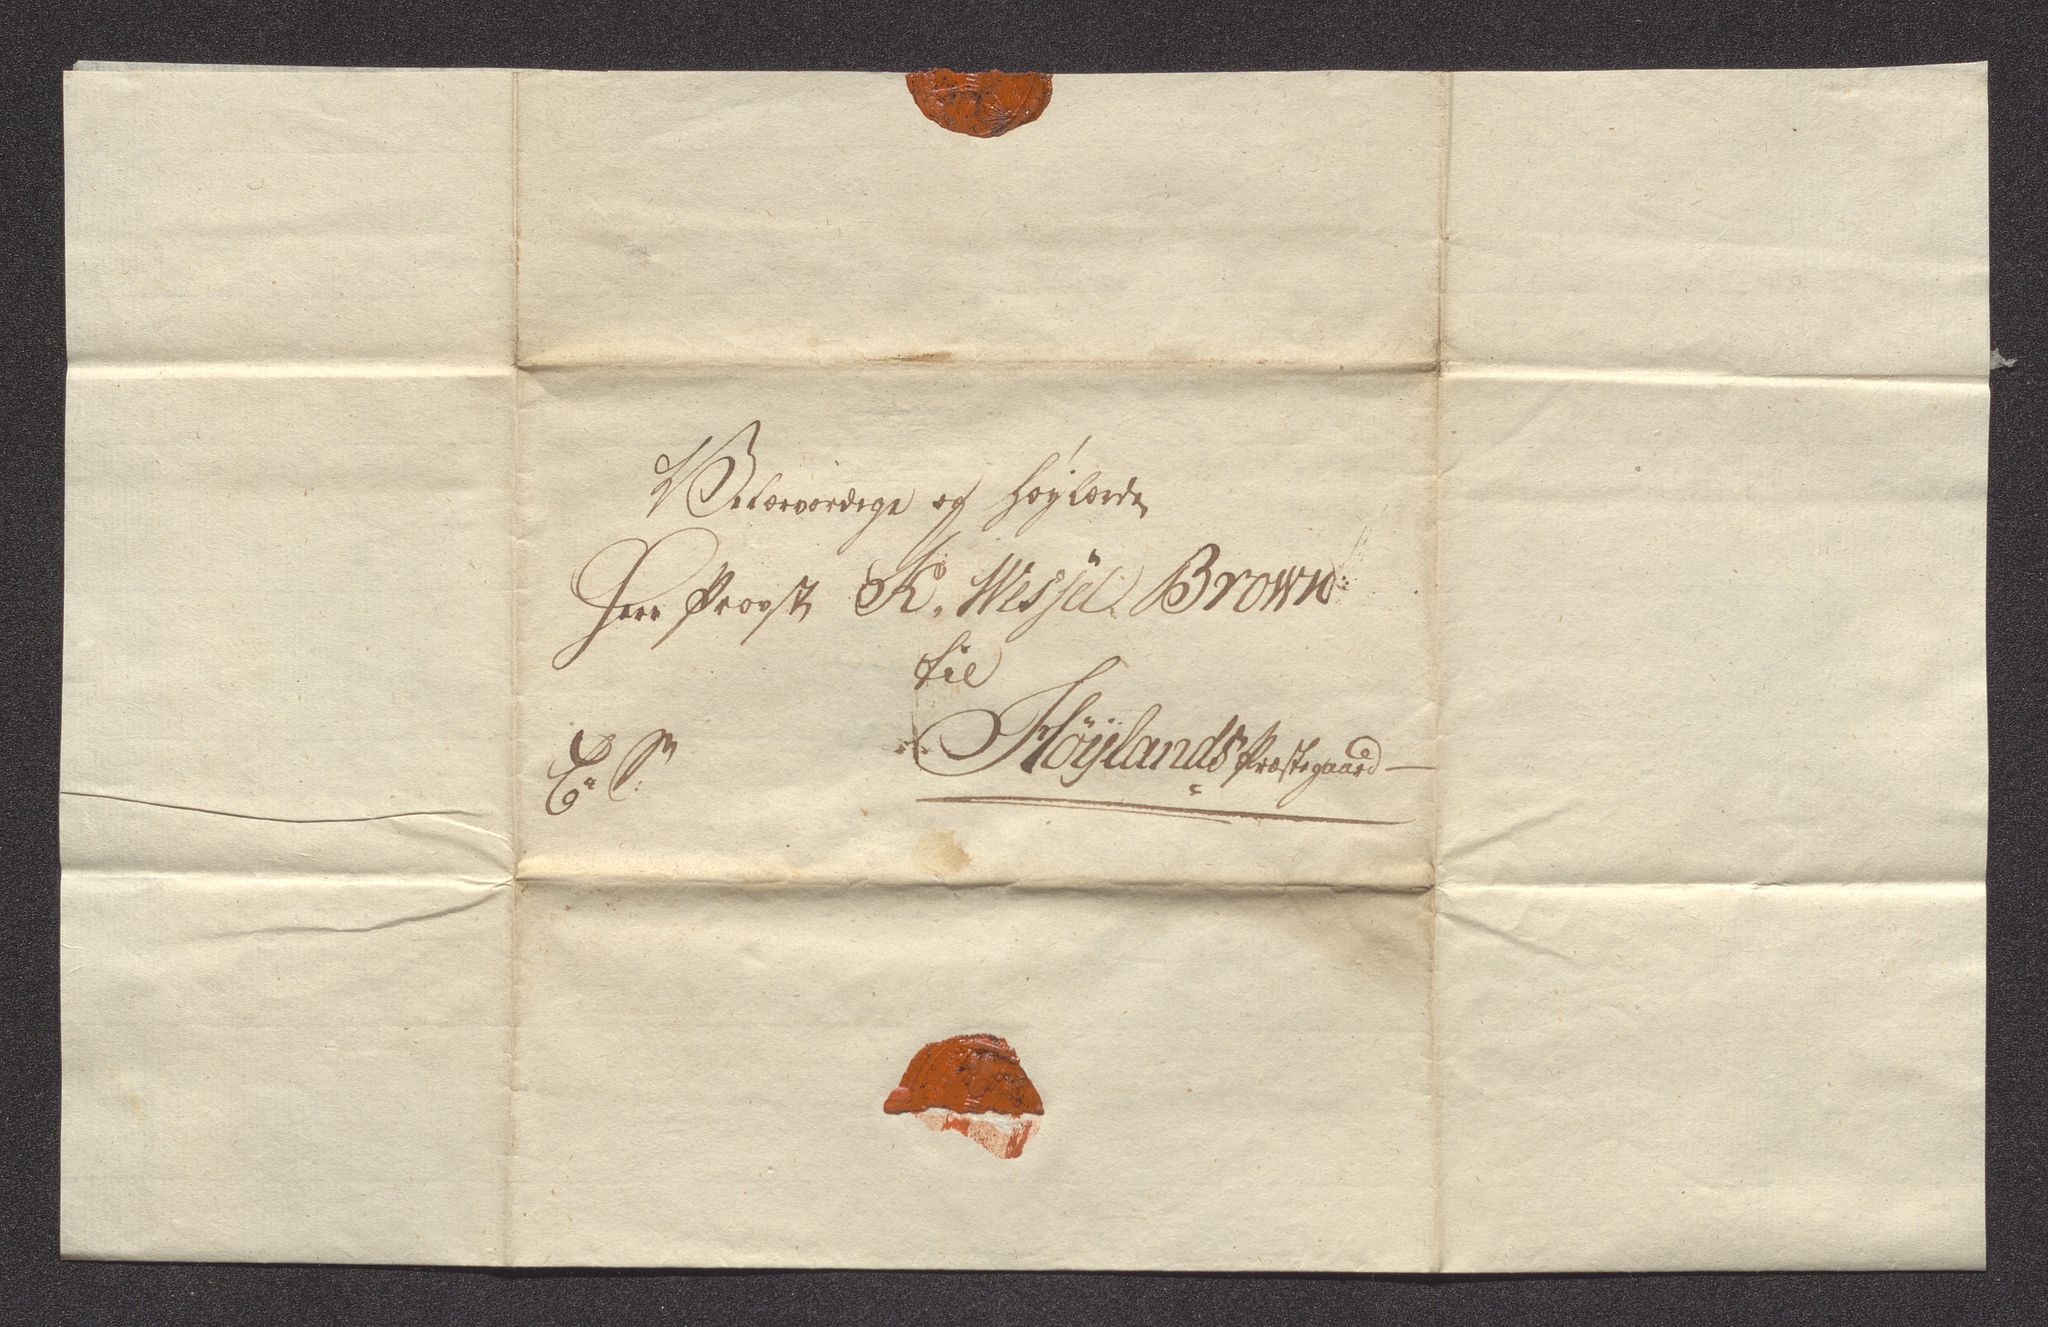 Velærværdige og Høylærde
Herr Provst K. Wessel Brown
til
Høylands Præstegaard